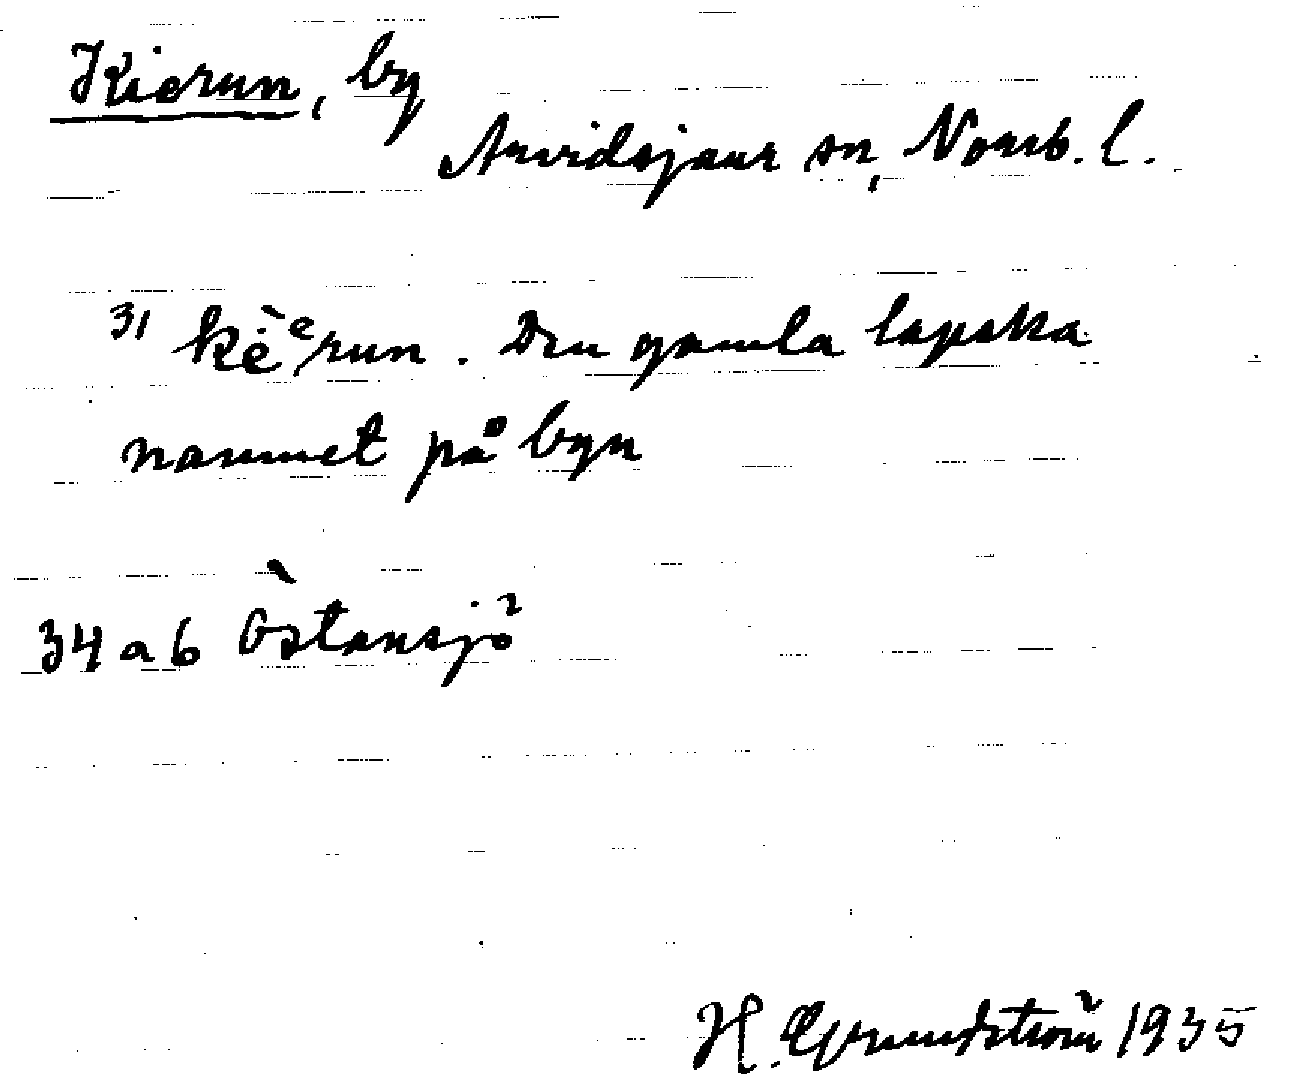 Kierun, by
Arvidsjaur sn, Norrb. l.
31 kė̀ᵉrun. Den gamla lapska
namnet på byn
34 a b Östansjö
H. Grundström 1935